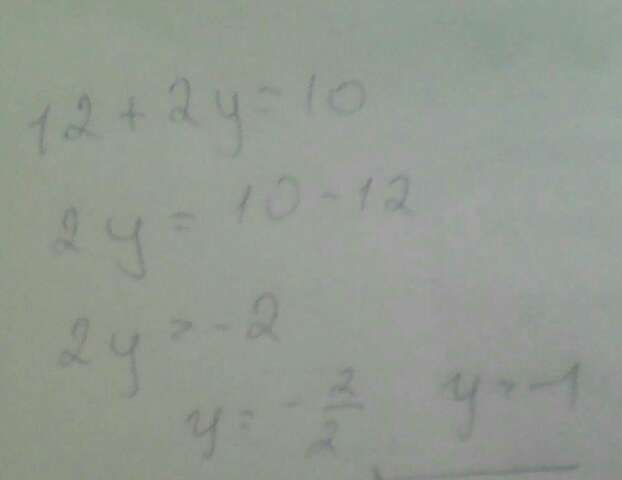 12 + 2y = 10
2y = 10 - 12
2y = - 2
y = - 2/2 y = -1